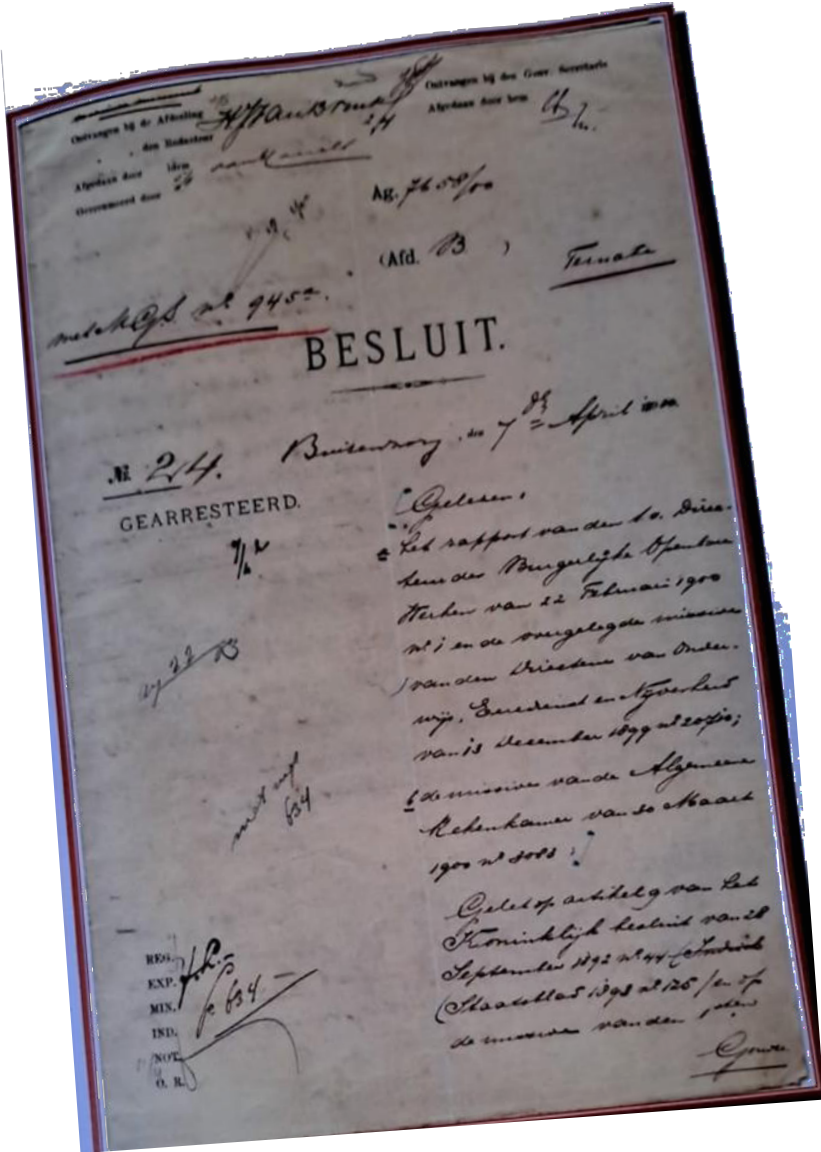 Ontvangen bij de Afdeeling
Ontvangen bij den Gouv. Secretaris
den Redacteur
Afgedaan door hem
Afgedaan door idem
Geresumeerd door
Ag. 7658/00
(Afd. B)
Ternate
met MGS. nº 945
BESLUIT.
№ 24.
Buitenzorg, den 7den April 1900
GEARRESTEERD.
Gelezen:
a het rapport van den 1e. Direc-
teur der Burgerlijke Openbare
Werken van 22 Februari 1900
nº 1 en de overgelegde missive
van den Directeur van Onder-
wijs, Eeredienst en Nijverheid
van 13 December 1899 nº
b de missive van de Algemeene
Rekenkamer van 20 Maart
1900 nº
Gelet op artikel 9 van het
Koninklijk besluit van 28
September 1892 nº 44 (Indisch
Staatsblad 1893 nº 125) en op
de missive van den 1sten
Gouv.
634
REG.
EXP.
MIN. 634.
IND.
NOT.
O. R.